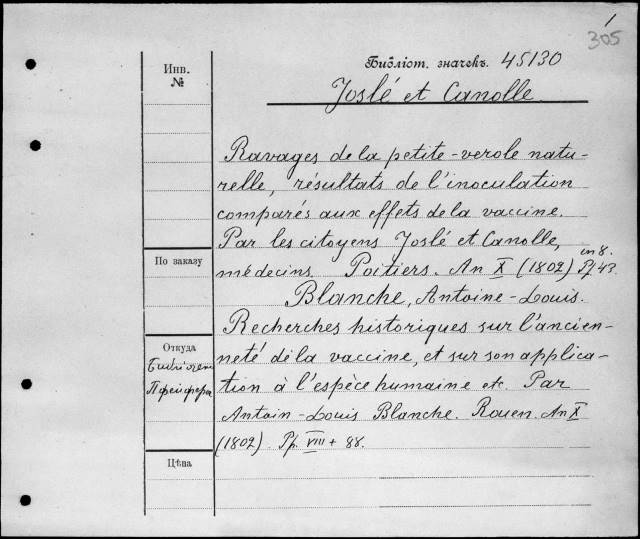 1
305
Библіот. значекъ. 45130
Инв.
№
Joslé et Canolle.
Ravages de la petite-verole natu-
relle, résultats de l'inoculation
comparés aux effets de la vaccine.
Par les citoyens Joslé et Canolle,
in 8.
médecins. Poitiers. An X (1802) Pp. 43.
По заказу
Blanche, Antoine-Louis.
Recherches historiques sur l'ancien-
neté déla vaccine, et sur son applica-
Откуда
Библіотеки
Пфейфера
tion à l'espèce humaine etc. Par
Antoin-Louis Blanche. Rouen. An X
(1802). Pp. VIII + 88.
Цѣна